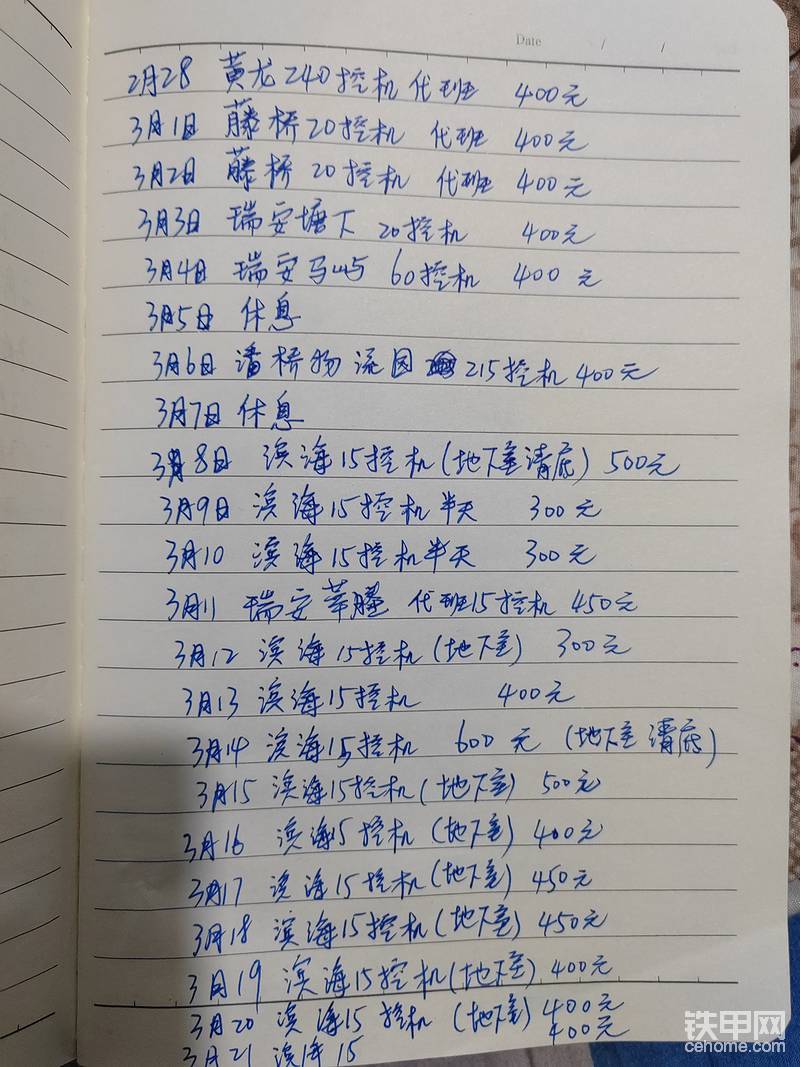 Date / /
2月28 黄龙240挖机 代班 400元
3月1日 藤桥20挖机 代班 400元
3月2日 藤桥 20挖机 代班 400元
3月3日 瑞安塘下 20挖机 400元
3月4日 瑞安马屿 60挖机 400元
3月5日 休息
3月6日 潘桥物流园 215挖机 400元
3月7日 休息
3月8日 滨海15挖机(地下室清底) 500元
3月9日 滨海15挖机半天 300元
3月10 滨海15挖机半天 300元
3月11 瑞安莘塍 代班15挖机 450元
3月12 滨海15挖机(地下室) 300元
3月13 滨海15挖机 400元
3月14 滨海15挖机 600元 (地下室清底)
3月15 滨海15挖机(地下室) 500元
3月16 滨海15挖机(地下室) 400元
3月17 滨海15挖机(地下室) 450元
3月18 滨海15挖机(地下室) 450元
3月19 滨海15挖机(地下室) 400元
3月20 滨海15挖机 (地下室) 400元
3月21 滨海15 400元
铁甲网
cehome.com